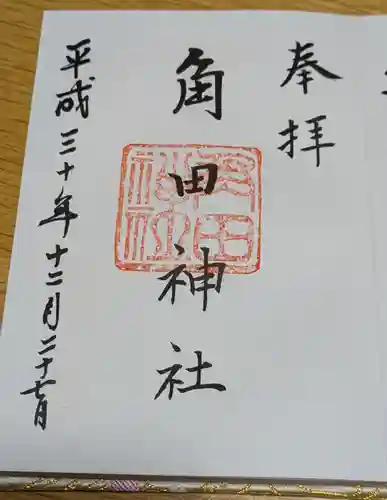 奉拝
角田神社
平成三十年十二月二十七日